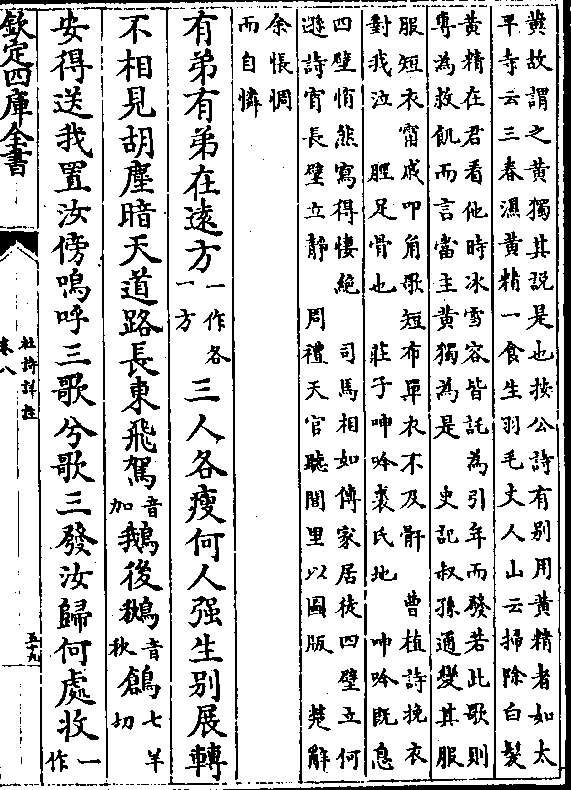 黄故謂之黄獨其說是也按公詩有别用黄精者如太
平寺云三春濕黄精一食生羽毛丈人山云掃除白髮
黄精在君看他時冰雪容皆託為引年而發若此歌則
專為救飢而言當主黄獨為是 史記叔孫通變其服
服短衣甯戚叩角歌短布單衣不及骭 曹植詩挽衣
對我泣 脛足骨也 莊子呻吟裘氏地 呻吟既息
四壁悄然寫得悽絶 司馬相如傳家居徒四壁立何
遜詩宵長壁立靜 周禮天官聽閭里以圖版 楚辭
余悵惆
而自憐
有弟有弟在遠方一作各一方三人各瘦何人强生别展轉
不相見胡塵暗天道路長東飛駕音加鵝後鶖音秋鶬七羊切
安得送我置汝傍嗚呼三歌兮歌三發汝歸何處收一作
欽定四庫全書
杜詩詳註
卷八
五十九